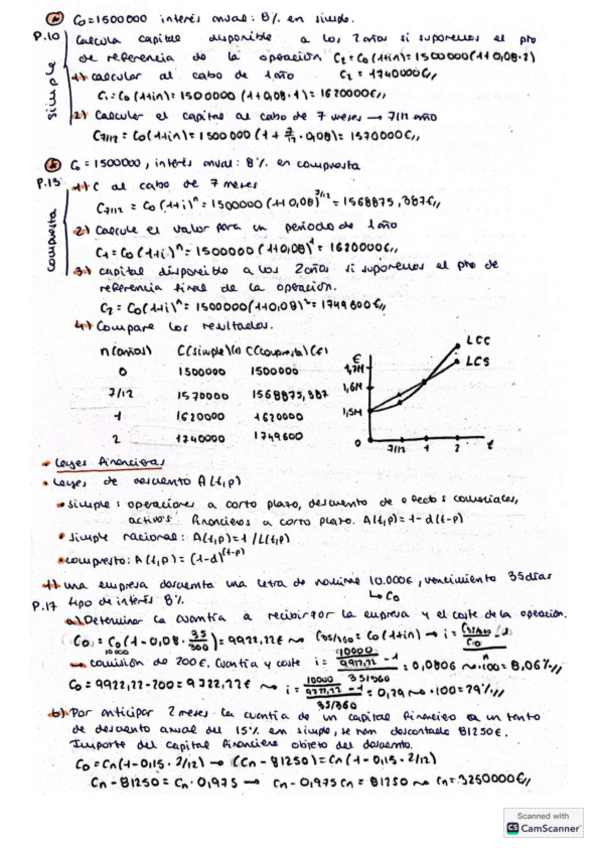 C₀=1500000 interés anual: 8% en simple.
P.10
simple
Calcula capital disponible a los 2 años si suponemos el pto
de referencia de la operación C₂=C₀(1+in)=1500000(1+0,08·2)
1) calcular al cabo de 1 año C₂=1740000€//
C₁=C₀(1+in)=1500000(1+0,08·1)=1620000€//
2) Calcular el capital al cabo de 7 meses → 7/12 año
C7/12=C₀(1+in)=1500000(1+7/12·0,08)=1570000€//
C₀=1500000, interés anual: 8% en compuesta
P.13
compuesta
1) C al cabo de 7 meses
C7/12=C₀(1+i)ⁿ=1500000(1+0,08)^7/12=1568875,387€//
2) Calcule el valor para un periodo de 1 año
C₁=C₀(1+i)ⁿ=1500000(1+0,08)¹=1620000€//
3) capital disponible a los 2 años si suponemos el pto de
referencia final de la operación.
C₂=C₀(1+i)ⁿ=1500000(1+0,08)²=1749600€//
4) Compare los resultados.
n(años) C(simple)(€) C(compuesta)(€)
0 1500000 1500000
7/12 1570000 1568875,387
1 1620000 1620000
2 1740000 1749600
€
1,7M
1,6M
1,5M
0
7/12 1 2 t
LCC
LCS
Leyes financieras
Leyes de descuento A(t,p)
simple: operaciones a corto plazo, descuento de efectos comerciales,
activos financieros a corto plazo. A(t,p)=1-d(t-p)
simple racional: A(t,p)=1/L(t,p)
compuesto: A(t,p)=(1-d)^(t-p)
1) una empresa descuenta una letra de nominal 10.000€, vencimiento 35 días
↳ C₀
P.17 tipo de interés 8%
a) Determinar la cuantía a recibir por la empresa y el coste de la operación.
C₀=C₀(1-0,08·35/360)=9922,22€ ~> C35/360=C₀(1+in) → i=
10000
comisión de 200€. Cuantía y coste i= =0,0806 ~>·100=8,06%//
35/360
C₀=9922,22-200=9722,22€ ~> i= =0,29 ~>·100=29%//
35/360
b) Por anticipar 2 meses la cuantía de un capital financiero a un tanto
de descuento anual del 15% en simple, se han descontado 81250€.
Importe del capital financiero objeto del descuento.
C₀=Cn(1-0,15·2/12) → (Cn-81250)=Cn(1-0,15·2/12)
Cn-81250=Cn·0,975 → Cn-0,975Cn=81250 ~> Cn=3250000€//
Scanned with
CS CamScanner